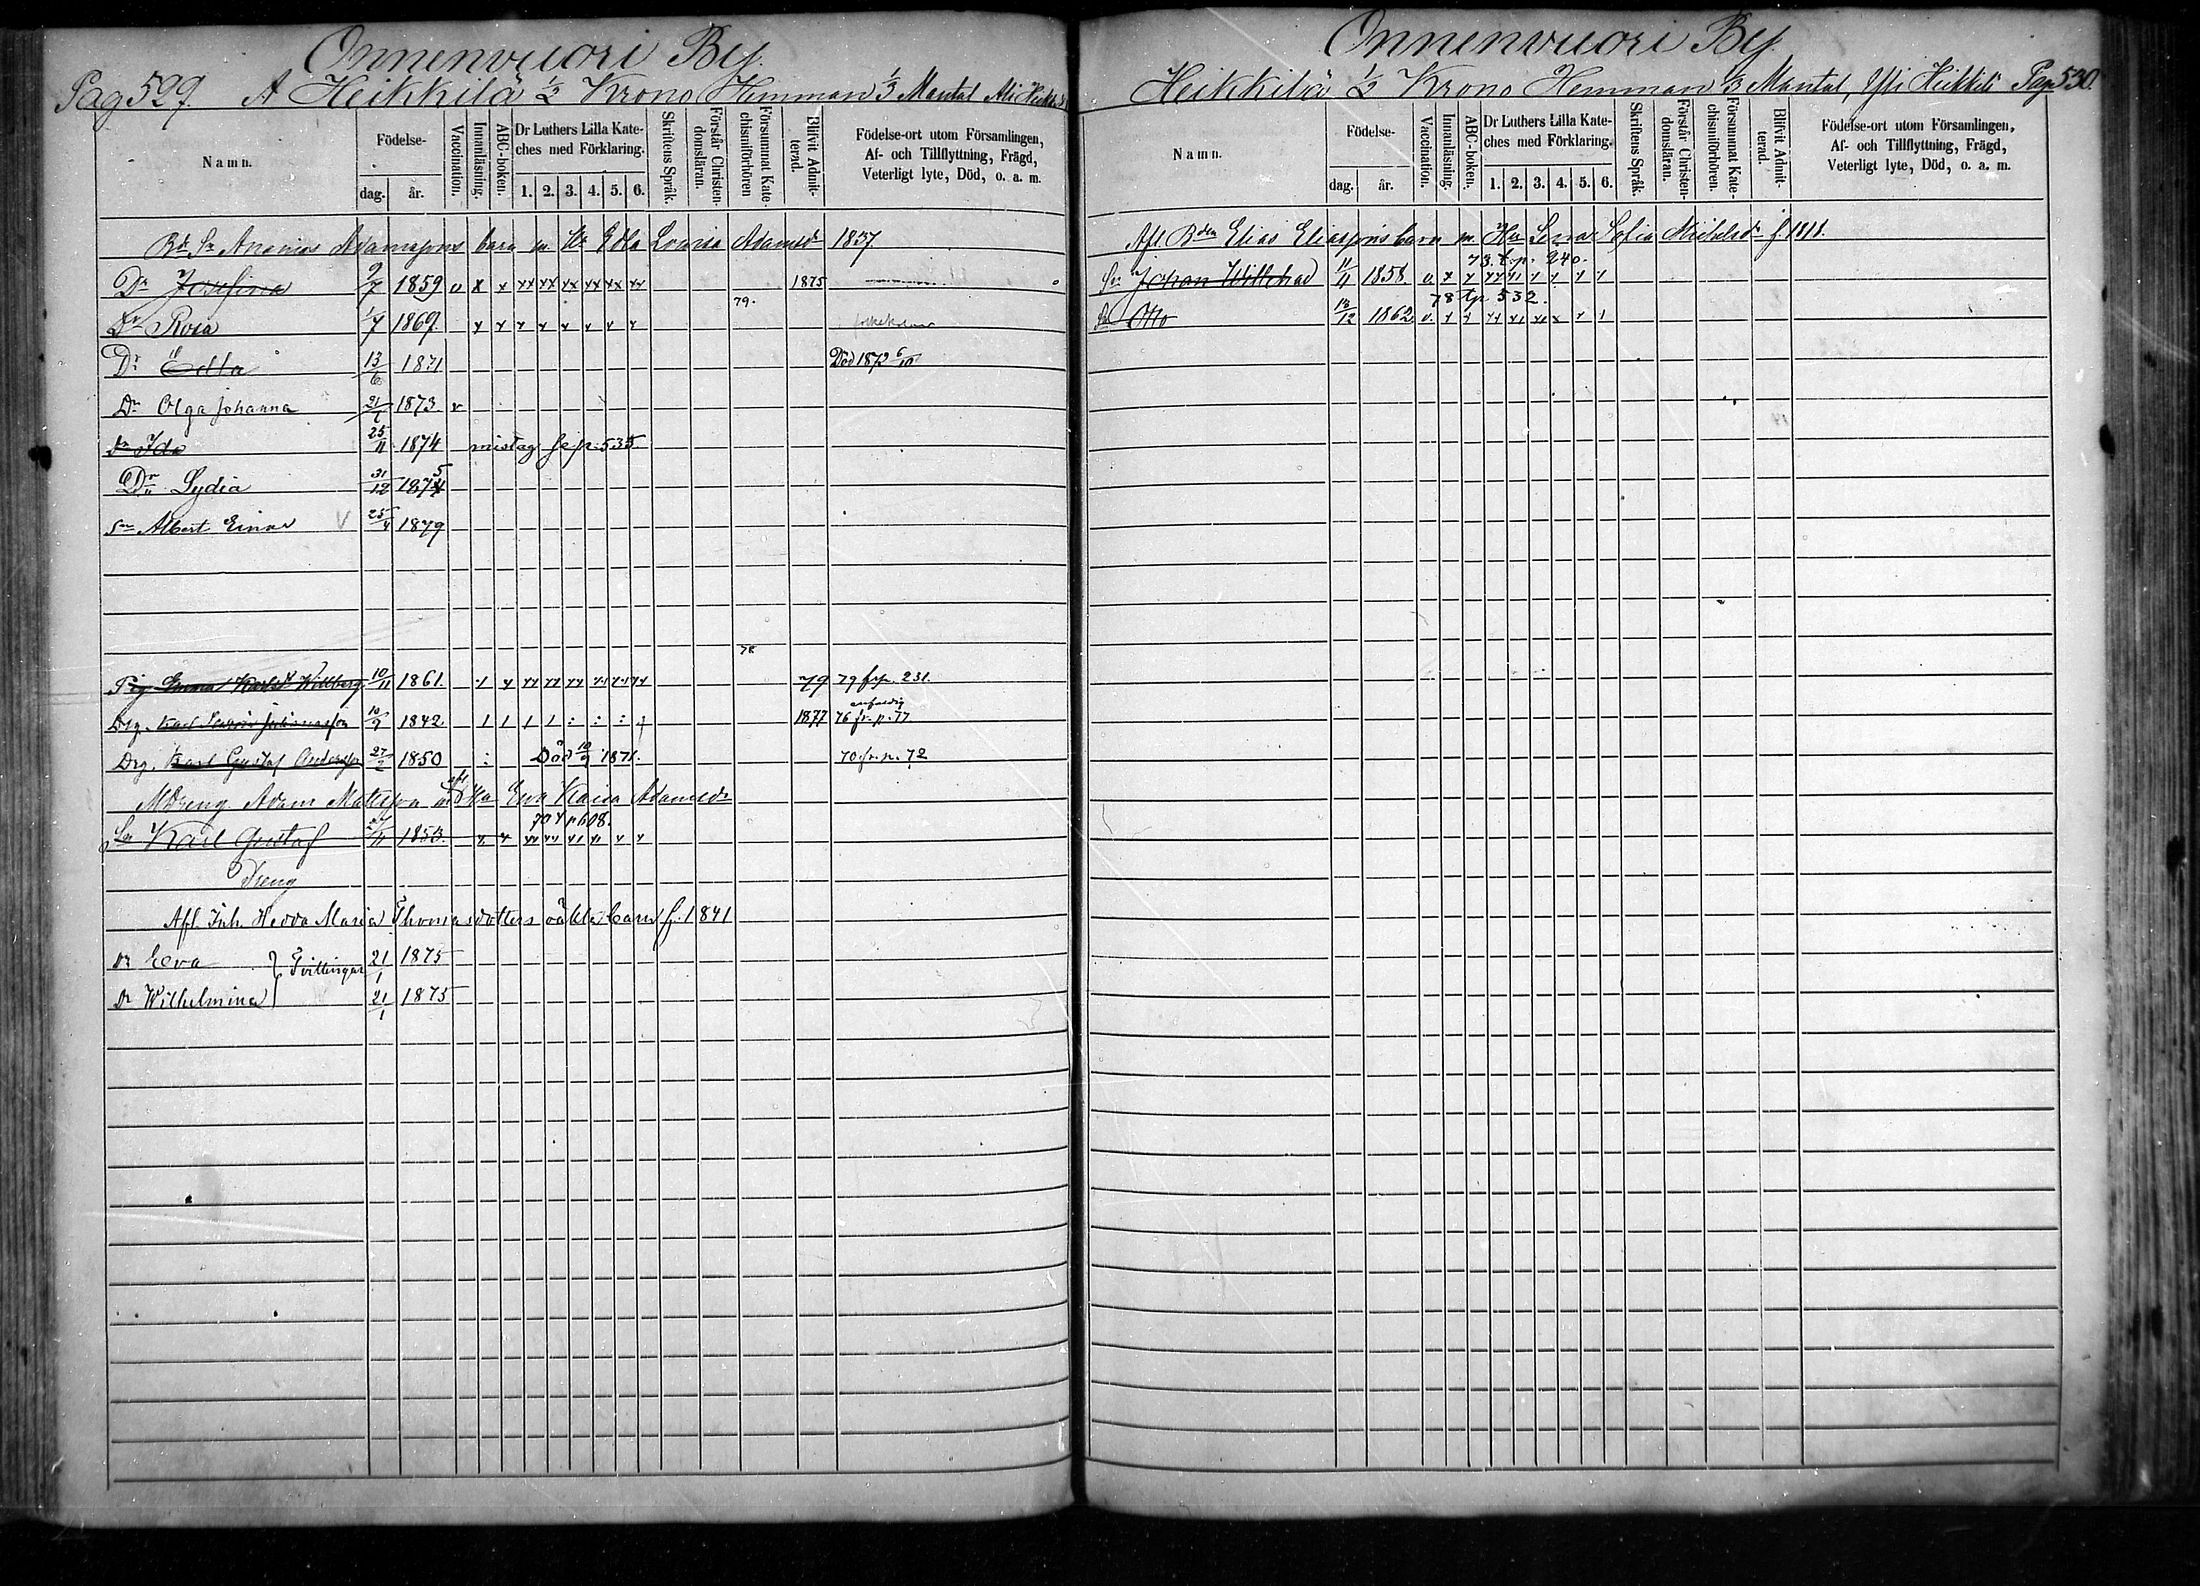 Onnenvuori By.
Pag 529. A Heikkilä ½ Krono Hemman ⅓ Mantal Ali Heikkilä
Namn.
Födelse-
dag. år.
Vaccination.
Innanläsning.
ABC-boken.
Dr Luthers Lilla Kate-
ches med Förklaring.
1. 2. 3. 4. 5. 6.
Skriftens Språk.
Förstår Christen-
domsläran.
Försummat Kate-
chismiförhören
Blifvit Admit-
terad.
Födelse-ort utom Församlingen,
Af- och Tillflyttning, Frägd,
Veterligt lyte, Död, o. a. m.
Bd. Sn Ananias Adamssons barn m. Hu Edla Lovisa Adamsdr 1837.
Dr Josefina 9/7 1859 v x x xx xx xx xx xx xx 1875
79.
Dr Rosa 1/7 1869. x x x x x x x x
Dr Edla 13/6 1871 Död 1873 6/10
Dr Olga Johanna 21/1 1873. v
Dr Ida 25/11 1874 mistag se p. 535
Dr Lydia 31/12 1875
Sn Albert Einar V 25/4 1879
78
Pig Emma Karlsd Willberg 10/11 1861. x x xx xx xx xx xx xx 79 79 frp. 231.
Drg. Karl 10/9 1842. 1877 76 fr. p. 77
Drg. Karl Gustaf Andersson 27/2 1850 Död 10/9 1871. 70 fr. p. 72
Mdreng Adam Matsson m afl. Hu Eva Kaisa Adamsdr
70 t p 608.
Sn Karl Gustaf 1853. x x xx xx xx xx x x
Dreng
Afl. Inh. Hedda Maria Thomasdotters oäkta barn f. 1841
Dr Eva } Tvillingar 21/1 1875
Dr Wilhelmina 21/1 1875
Onnenvuori By
Heikkilä ½ Krono Hemman ⅓ Mantal, Yli Heikkilä Pag 530.
Namn.
Födelse-
dag. år.
Vaccination.
Innanläsning.
ABC-boken.
Dr Luthers Lilla Kate-
ches med Förklaring.
1. 2. 3. 4. 5. 6.
Skriftens Språk.
Förstår Christen-
domsläran.
Försummat Kate-
chismiförhören.
Blifvit Admit-
terad.
Födelse-ort utom Församlingen,
Af- och Tillflyttning, Frägd,
Veterligt lyte, Död, o. a. m.
Afl. Bden Elias Eliassons barn m. Hu Lena Sofia Michelsdr f. 1818.
73. t. p. 240.
Sn Johan Willehad 11/4 1858. v. x x xx
78 tp 532.
Sn Otto 13/12 1862 v. x x